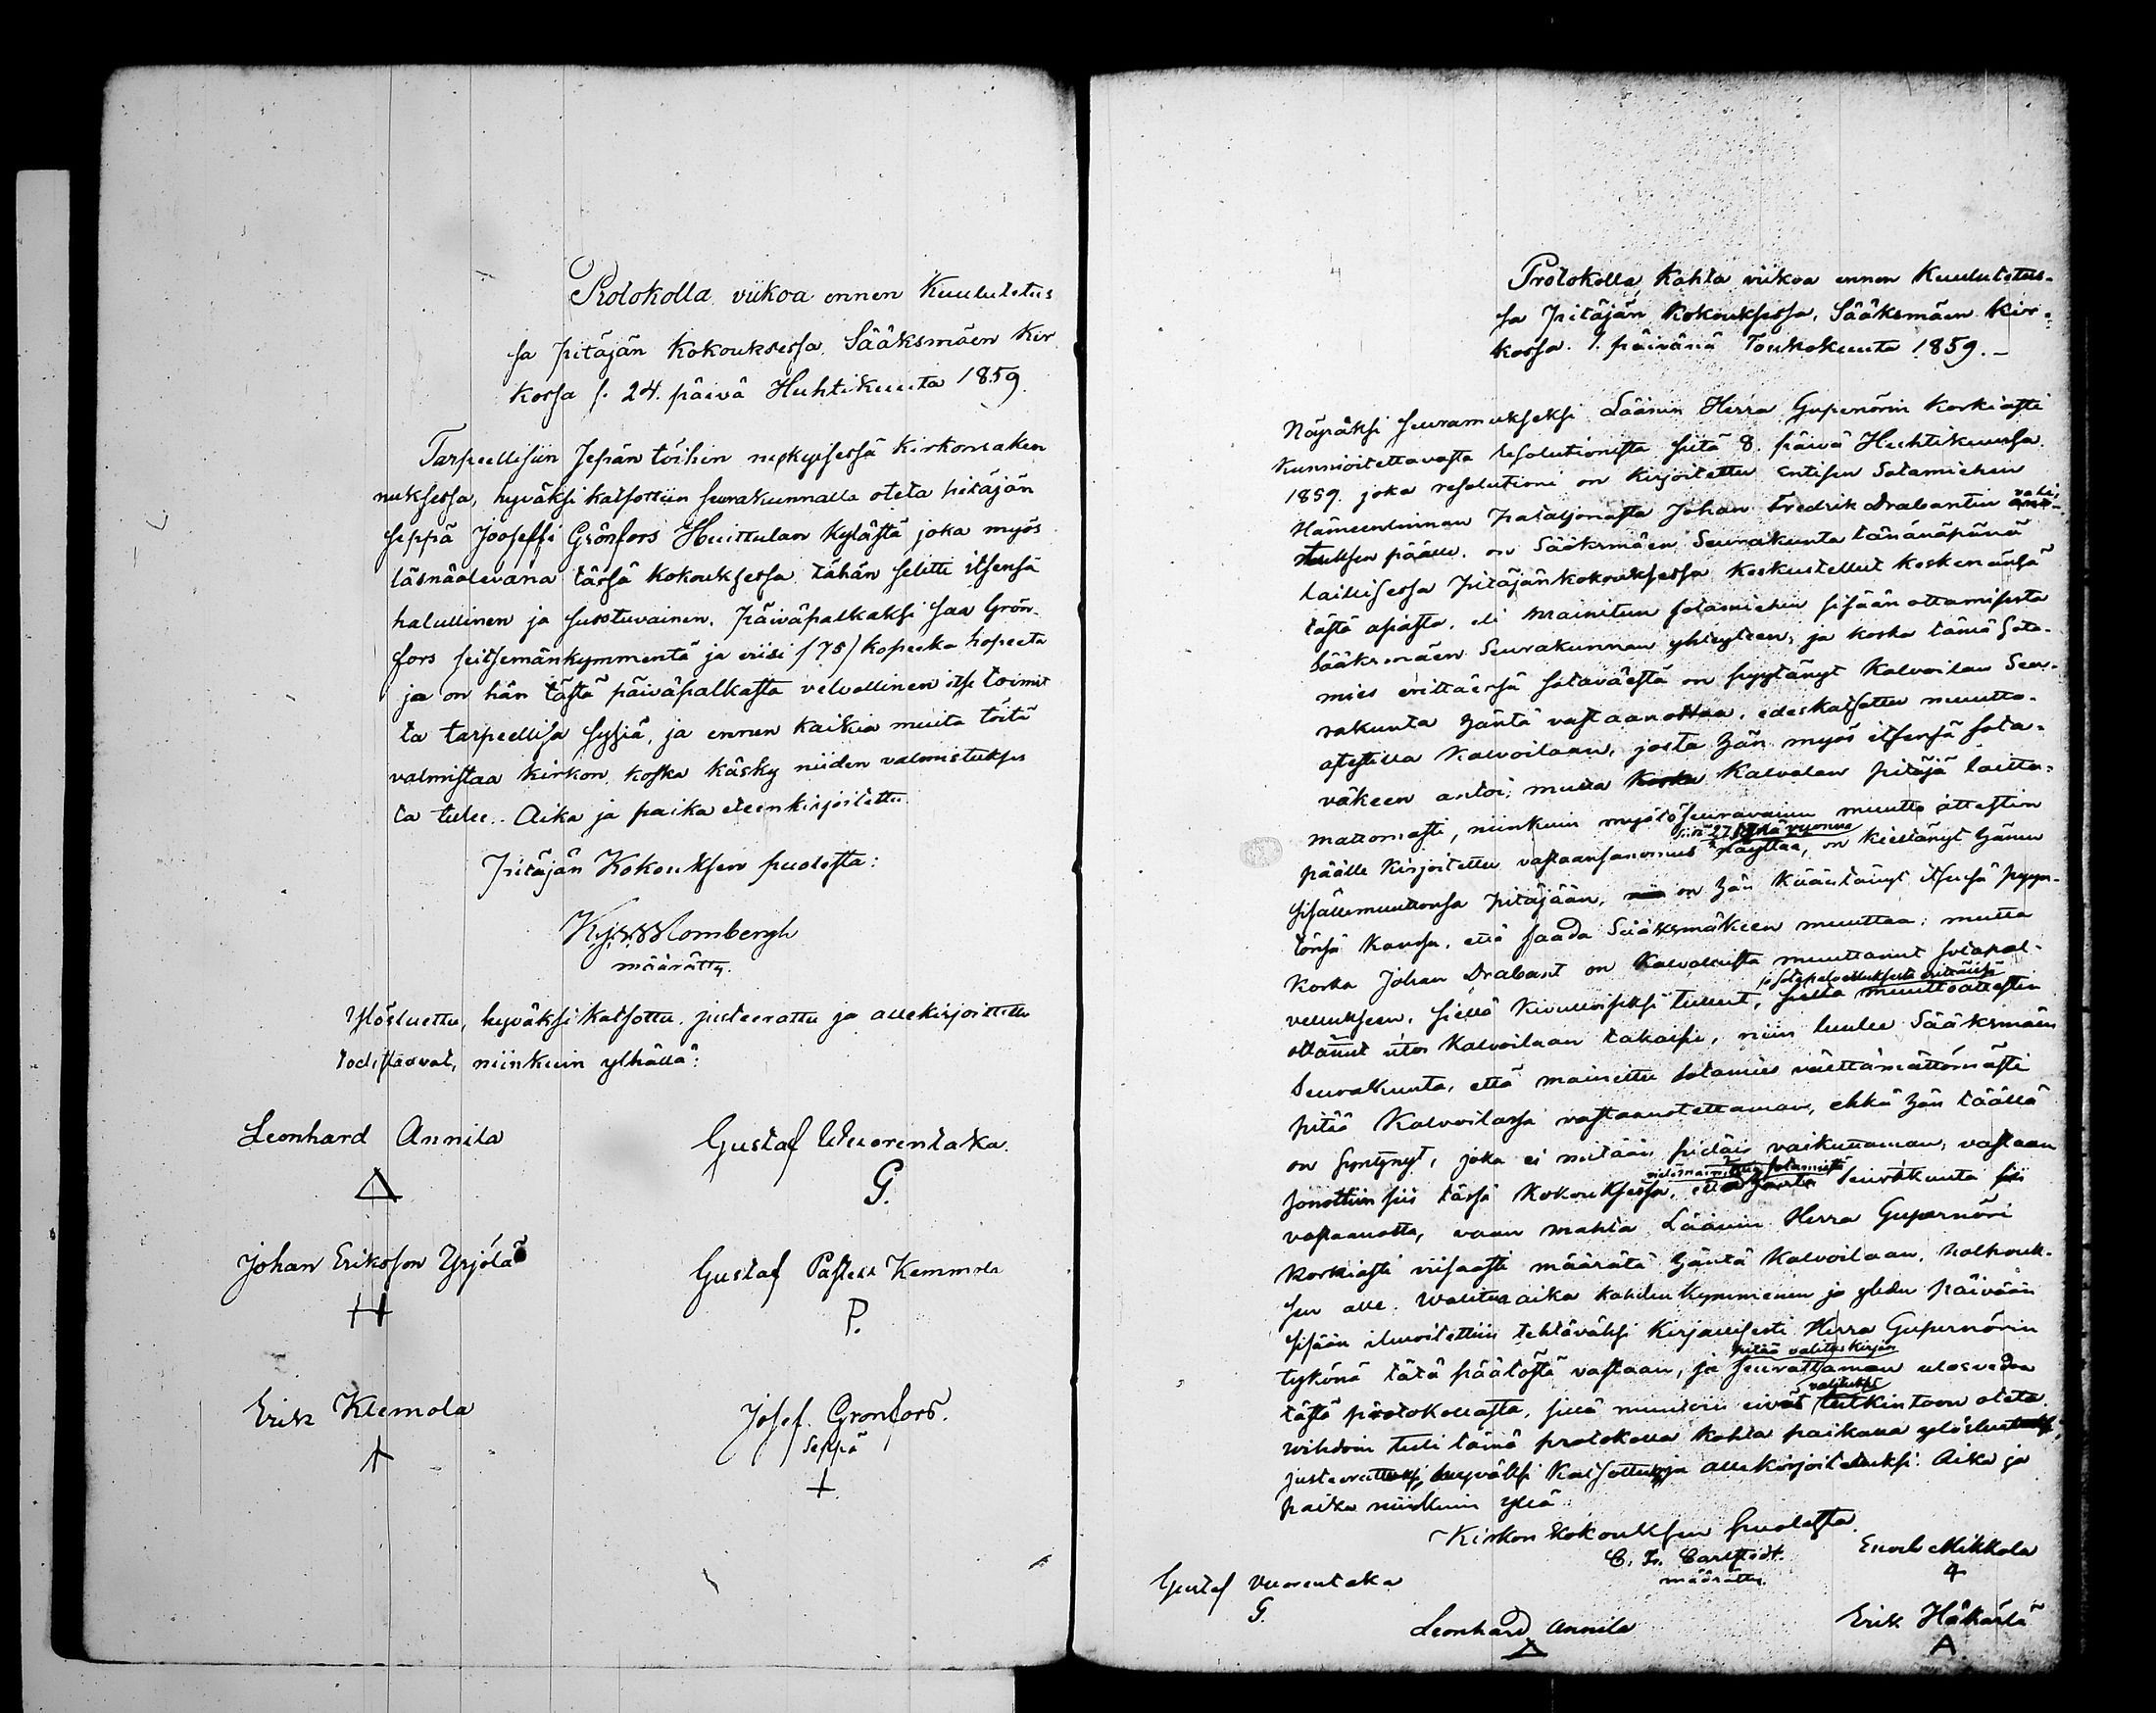 Protokolla viikoa ennen Kuulutetus
sa Pitäjän Kokouksessa Sääksmäen Kir
kossa s. 24. päivä Huhtikuuta 1859.
Tarpeellisiin Sepän töihin nykyisessä kirkonraken
nuksessa, hyväksi katsottiin seurakunnalla oteta pitäjän
seppä Joosessi Grönfors Huittulan Kylästä joka myös
läsnäolevana tässä Kokouksessa tähän selitti itsensä
halullinen ja suostuvainen. Päiväpalkaksi saa Grön-
fors seitsemänkymmentä ja viisi (75) kopeeka hopeeta
ja on hän tästä päiväpalkasta velvollinen itse toimit
ta tarpeellisa sysiä, ja ennen kaikia muita töitä
valmistaa kirkon, koska käsky niiden valmistukses
ta tulee. Aika ja paika eteenkirjoitettu.
Pitäjän Kokouksen puolesta:
määrätty.
Ylösluettu, hyväksi katsottu, justeerattu ja allekirjoitettu
todistaavat, niinkuin ylhällä:
Leonhard Annila
Gustaf Wuorentaka.
G.
Johan Eriksson Yrjölä
Gustaf Kemmola
P.
Erik Klemola
Josef. Gronfors.
Seppä
Protokolla Kahta viikoa ennen Kuulutetus-
sa Pitäjän Kokouksessa, Sääksmäen Kir-
kossa. 1. päivänä Toukokuuta 1859.-
Nöyräksi seuramukseksi Läänin Herra Gupernörin korkiasti
kunnioitettavasta resolutionista siitä 8. päivä Huhtikuussa
1859. joka resolutioni on kirjoitettu entisen Sotamiehen
Hämeenlinnan Pataljonasta Johan Fredrik Drabantin vali-
tuksen päälle. on Sääksmäen Seurakunta tänänäpänä
laillisessa Pitäjänkokouksessa keskustellut keskenänsä
tästä asiasta, eli mainitun sotamiehen sisään ottamisesta
Sääksmäen Seurakunnan yhteyteen; ja koska tämä Sota-
mies erittäissä sotaväestä on pyytänyt Kalvoilan Seu-
rakunta häntä vastaanottaa, edeskatsottu muutto-
atestilla Kalvoilaan, josta hän myös itsensä sota-
väkeen antoi; mutta koska Kalvolan pitäjä laitto-
mattomasti, niinkuin myötöseuravainen muutto attestin
päälle kirjoitettu vastaansanomus näyttää, on kieltänyt hänen
sisällemuuttonsa Pitäjään, on hän kääntänyt itsensä pyyn-
tönsä kanssa, että saada Sääksmäkeen muuttaa; mutta
koska Johan Drabant on Kalvolasta muuttanut sotapal-
velukseen, siellä kirulloiseksi tullut, muuttoattestin
ottanut ulos Kalvoilaan takaisi, niin luulee Sääksmäen
Seurakunta, että mainittu sotamies välttämättömästi
pitää Kalvoilassa vastaanotettaman, ehkä hän täällä
on syntynyt, joka ei mitään pidäis vaikuttaman; vastaan
sanottiin siis tässä Kokouksessa, Seurakunta
vastaanotta, vaan mahta Läänin Herra Gupernöri
korkiasti viisaasti määrätä häntä Kalvoilaan, holhouk-
sen alle. Walitus aika kahdenkymmenen ja yhden päivään
sisään ilmoitettiin tehtäväksi kirjallisesti Herra Gupernörin
pitää valituskirjan
tykönä tätä päätöstä vastaan, ja seurattaman ulosvedon
valitukset
tästä protokollasta, sillä muutoin eivät tutkintoon oteta.
Wihdoin tuli tämä protokolla kohta paikalla ylösluetuksi,
justeeratuksi, hyväksi katsottu ja allekirjoitetuksi. Aika ja
paika niinkuin yllä
Kirkon Kokouksen puolesta
määrätty.
Enoch Mikkola
Gustaf Vuorentaka
G.
Leonhard Annila
Erik Häkärlä
A